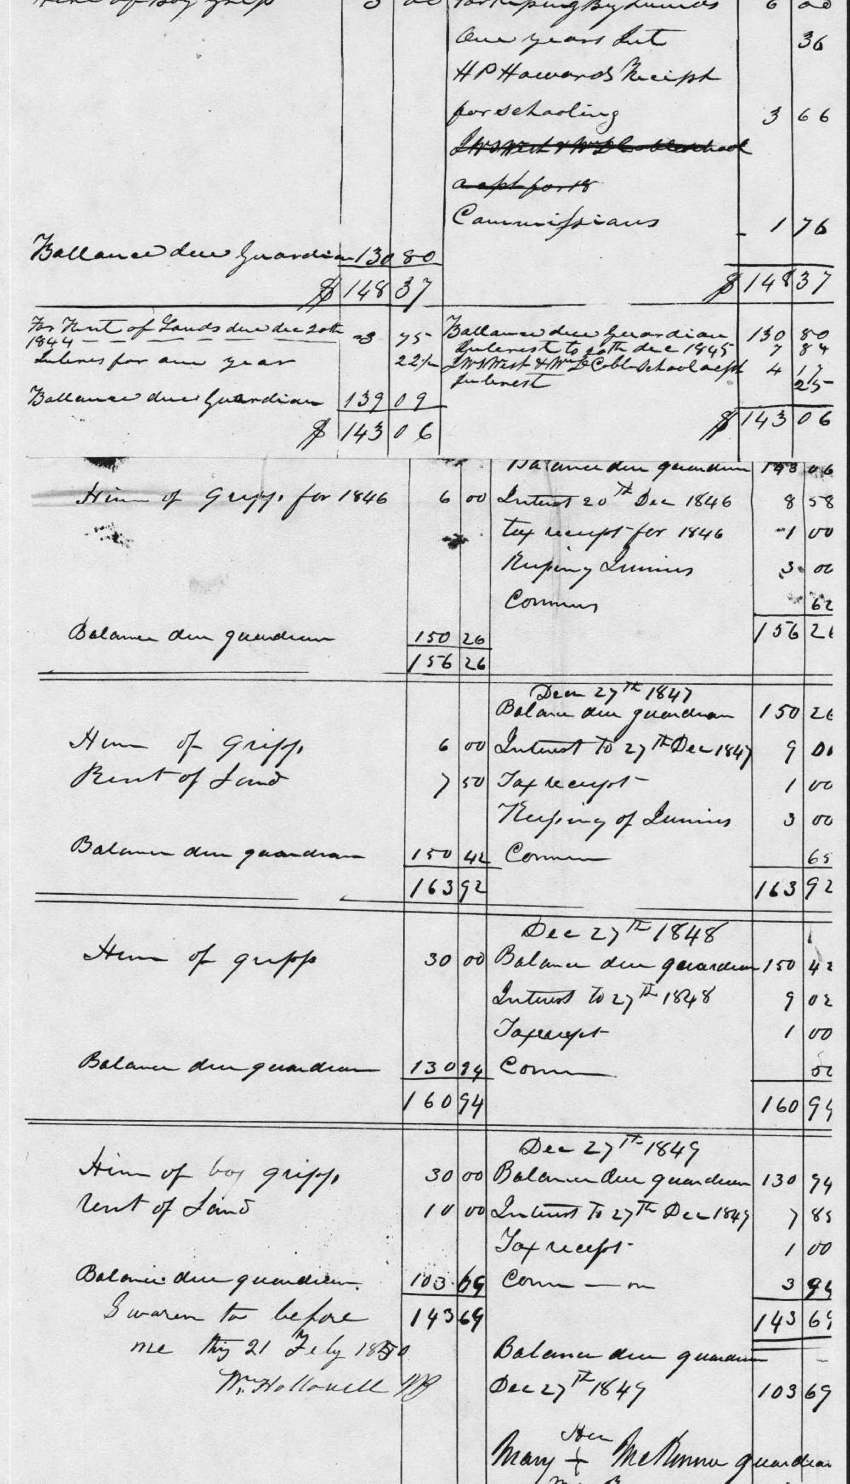 Hire of Boy Gripp 3 00 For keeping By Junius 6 00
One years Int 36
H P Howards Receipt
for schooling 3 66
Commissions 1 76
Ballance due Guardian 130 80
$ 148 37 $ 148 37
For Rent of Lands due dec 20th 1844 3 75 Ballance due Guardian 130 80
Interest to 20th dec 1845 7 84
Interes for one year 22½ J W West & Wm D Cobb School acpt 4 17
Interest 25
Ballance due Guardian 139 09
$ 143 06 $ 143 06
Balance due guardian 143 06
Hire of Gripp, for 1846 6 00 Interest 20th Dec 1846 8 58
tax receipt for 1846 1 00
Keeping Junius 3 00
Commns 62
Balance due guardian 150 26 156 26
156 26
Decr 27th 1847
Balance due guardian 150 26
Hire of Gripp, 6 00 Interest To 27th Dec 1847 9 01
Rent of Land 7 50 Tax receipt 1 00
Keeping of Junius 3 00
Balance due guardian 150 42 Comm 65
163 92 163 92
Dec 27th 1848
Hire of gripp 30 00 Balance due guardian 150 42
Interest to 27th 1848 9 02
Tax receipt 1 00
Balance due guardian 130 94 Comm
160 94 160 94
Dec 27th 1849
Hire of boy gripp, 30 00 Balance due guardian 130 94
Rent of Land 10 00 Interest To 27th Dec 1849 7 85
Tax receipt 1 00
Balance due guardian 103 69 Comm on 3 94
Swaren to before 143 69 143 69
me this 21 Feby 1850 Balance due guardian
Wm Hollowell JP Dec 27th 1849 103 69
Her
Mary + McKinne guardian